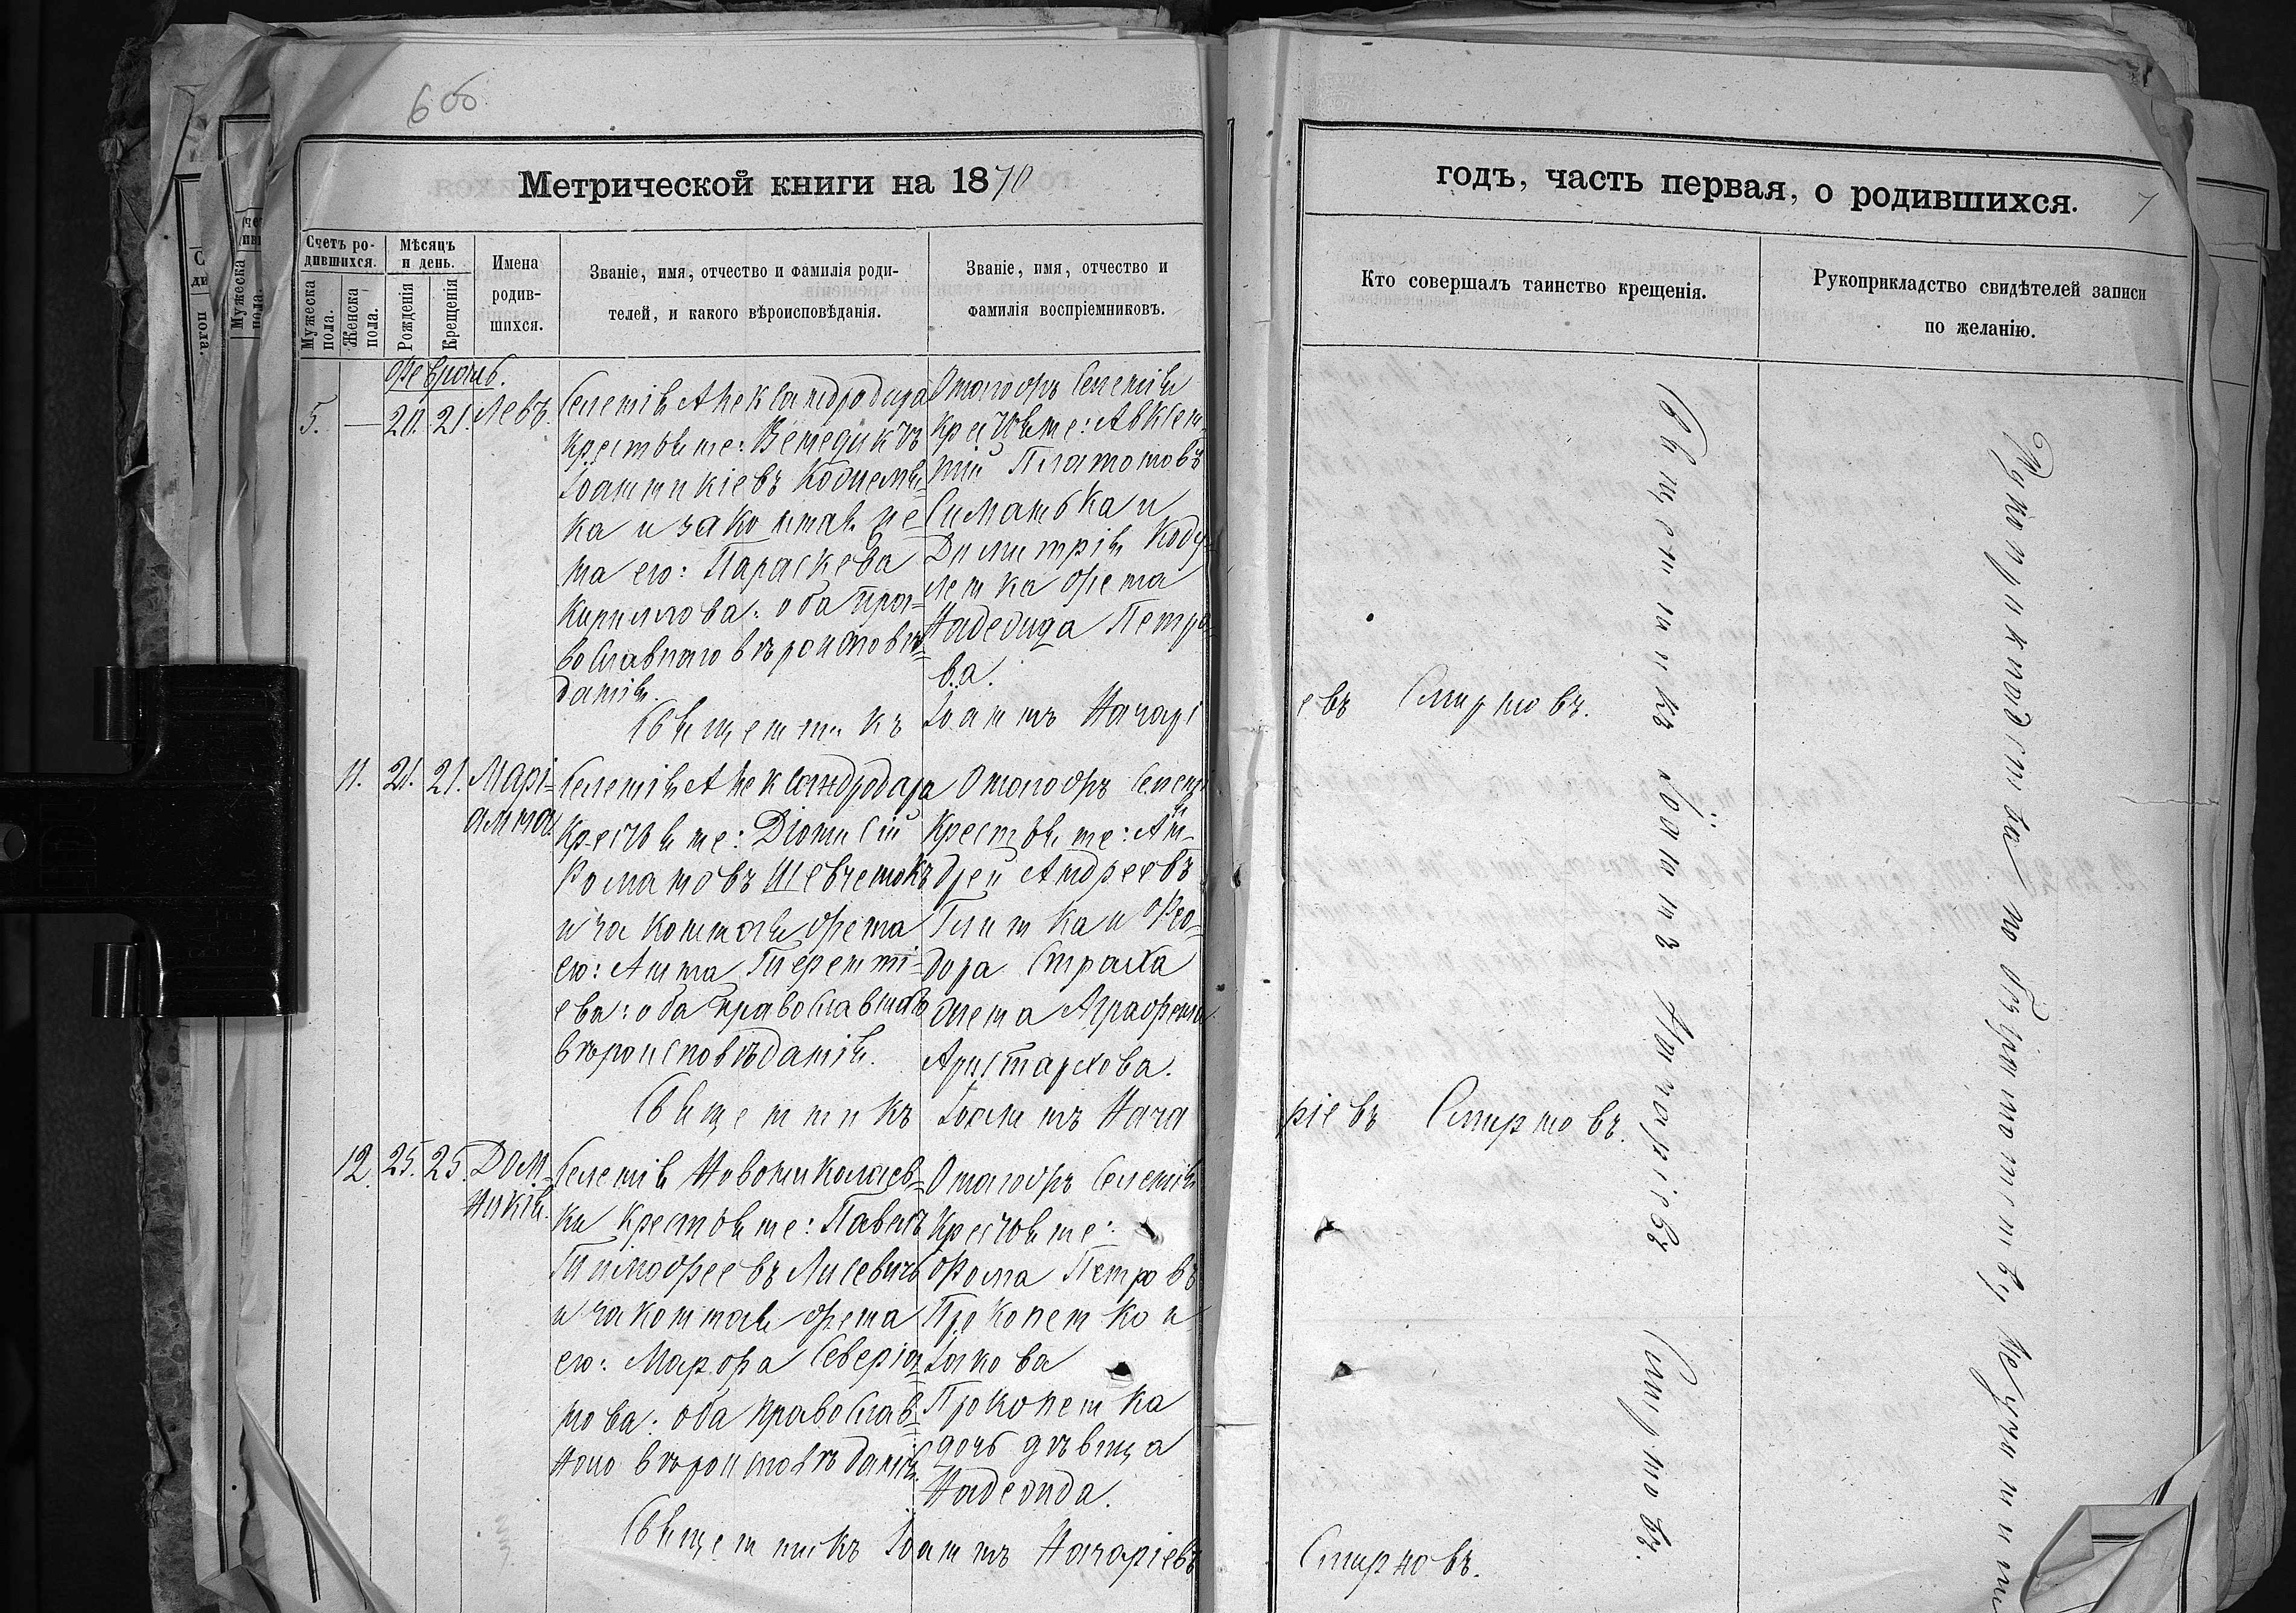 6 об
Метрической книги на 1870
годъ, часть первая, о родившихся.
7
Счетъ ро-
дившихся.
Мужеска пола.
Женска пола.
Мѣсяцъ
и день.
Рожденія
Крещенія
Имена
родив-
шихся.
Званіе, имя, отчество и фамилія роди-
телей, и какого вѣроисповѣданія.
Званіе, имя, отчество и
фамилія воспріемниковъ.
Кто совершалъ таинство крещенія.
Рукоприкладство свидѣтелей записи
по желанію.
Февраль.
5. — 20. 21. Левъ.
Селенія Александродара
крестьяне: Венедиктъ
Іоанникіевъ
ка и законная же-
на его: Параскева
Кириллова: оба пра-
вославнаго вѣроисповѣ-
данія.
Оногожъ селенія
крестьяне: Авксен-
тій Платоновъ
и
Димитрія
жена
Надежда Петро-
ва.
Священникъ Іоаннъ Назарі
евъ Смирновъ.
11. 21. 21. Марі-
амна
Селенія Александродара
крестьяне: Діонисій
Романовъ Шевченокъ
и законная жена
его: Анна Терентi-
ева: оба православнаго
вѣроисповѣданія.
Оногожъ селенія
крестьяне: Ан-
дрей Андреевъ
и Ѳео-
дора Страха
жена Аграфена
Аристархова.
Священникъ Іоаннъ Наза
ріевъ Смирновъ.
12. 25. 25. Дом-
никія.
Селенія Новониколаев-
ки крестьяне: Павелъ
Тимофеевъ Лисевичъ
и законная жена
его: Марфа Северіа-
нова: оба православ-
наго вѣроисповѣданія.
Оногожъ селенія
крестьяне:
Фома Петровъ
Прокопенко и
Іакова
Прокопенка
дочь дѣвица
Надежда.
Священникъ Іоаннъ Назаріевъ
Смирновъ.
Священникъ Іоаннъ Назаріевъ Смирновъ.
Рукоприкладства по безграмотству не учинили